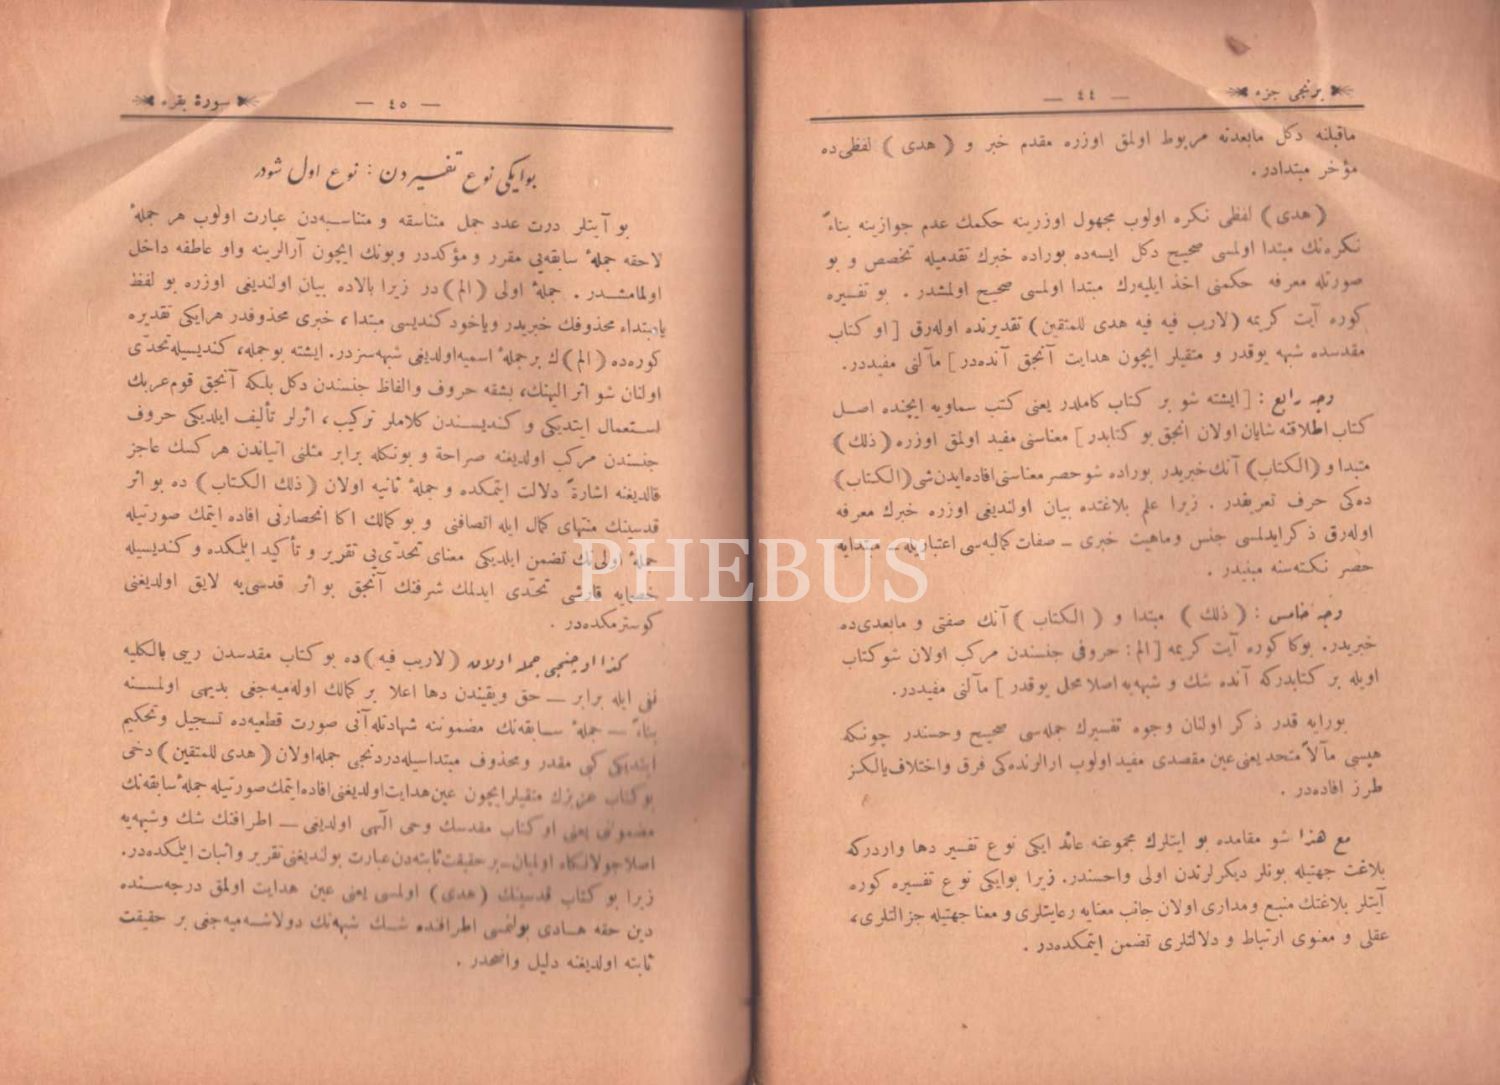 برنجی جزء
— ٤٤ —
ماقبلنه دكل مابعدنه مربوط اولمق اوزره مقدم خبر و ( هدی ) لفظی‌ده
مؤخر مبتدادر.
( هدی ) لفظی نكره اولوب مجهول اوزرینه حكمك عدم جوازینه بناءً
نكره‌نك مبتدا اولمسی صحیح دكل ایسه‌ده بوراده خبرك تقدمیله تخصص و بو
صورتله معرفه حكمنی اخذ ایلیه‌رك مبتدا اولمسی صحیح اولمشدر . بو تفسیره
كوره آیت كریمه (لاریب فیه فیه هدی للمتقین) تقدیرنده اوله‌رق [ او كتاب
مقدسده شبهه یوقدر و متقیلر ایچون هدایت آنجق آنده‌در ] مآلنی مفیددر.
وجه رابع : [ ایشته شو بر كتاب كاملدر یعنی كتب سماویه ایچنده اصل
كتاب اطلاقنه شایان اولان انجق بو كتابدر ] معناسنی مفید اولمق اوزره (ذلك)
مبتدا و (الكتاب) آنك خبریدر بوراده شو حصر معناسنی افاده ایدن شی (الكتاب)
ده‌كی حرف تعریفدر . زیرا علم بلاغتده بیان اولندیغی اوزره خبرك معرفه
اوله‌رق ذكر ایدلمسی جنس وماهیت خبری ـ صفات كمالیه‌سی اعتباریله ـ مبتدایه
حصر نكته‌سنه مبنیدر .
وجه خامس : ( ذلك ) مبتدا و ( الكتاب ) آنك صفتی و مابعدی‌ده
خبریدر. بوكا كوره آیت كریمه [ الم : حروفی جنسندن مركب اولان شو كتاب
اویله بر كتابدركه آنده شك و شبهه‌یه اصلا محل یوقدر ] مآلنی مفیددر.
بورایه قدر ذكر اولنان وجوه تفسیرك جمله‌سی صحیح وحسندر چونكه
هپسی مآلاً متحد یعنی عین مقصدی مفید اولوب ارالرنده‌كی فرق واختلاف یالكز
طرز افاده‌در .
مع هذا شو مقامده بو ایتلرك مجموعنه عائد ایكی نوع تفسیر دها واردركه
بلاغت جهتیله بونلر دیكرلرندن اولی واحسندر. زیرا بوایكی نوع تفسیره كوره
آیتلر بلاغتك منبع ومداری اولان جانب معنایه رعایتلری و معنا جهتیله جزالتلری،
عقلی و معنوی ارتباط و دلالتلری تضمن ایتمكده‌در .
سورهٔ بقره
— ٤٥ —
بوایكی نوع تفسیردن : نوع اول شودر
بو آیتلر درت عدد جمل متناسقه و متناسبه‌دن عبارت اولوب هر جملهٔ
لاحقه جملهٔ سابقه‌یی مقرر و مؤكددر وبونك ایچون آرالرینه واو عاطفه داخل
اولمامشدر . جملهٔ اولی (الم) در زیرا بالاده بیان اولندیغی اوزره بو لفظ
یا مبتداء محذوفك خبریدر ویاخود كندیسی مبتدا ، خبری محذوفدر هرایكی تقدیره
كوره‌ده (الم) ك بر جملهٔ اسمیه اولدیغی شبهه‌سزدر. ایشته بوجمله، كندیسیله تحدّی
اولنان شو اثر الهینك، بشقه حروف والفاظ جنسندن دكل بلكه آنجق قوم عربك
استعمال ایتدیكی و كندیسندن كلاملر تركیب ، اثرلر تألیف ایلدیكی حروف
جنسندن مركب اولدیغنه صراحة و بونكله برابر مثلنی اتیاندن هركسك عاجز
قالدیغنه اشارةً دلالت ایتمكده و جملهٔ ثانیه اولان ( ذلك الكتاب ) ده بو اثر
قدسینك منتهای كمال ایله اتصافنی و بو كمالك اكا انحصارینی افاده ایتمك صورتیله
جملهٔ اولی‌نك تضمن ایلدیكی معنای تحدّی‌یی تقریر و تأكید ایلمكده و كندیسیله
خصمایه قارشی تحدّی ایدلمك شرفنك آنجق بو اثر قدسی‌یه لایق اولدیغنی
كوسترمكده‌در .
كذا اوچنجی جمله اولان (لاریب فیه) ده بو كتاب مقدسدن ریبی بالكلیه
نفی ایله برابر ـ حق ویقیندن دها اعلا بر كمالك اوله‌میه‌جغی بدیهی اولمسنه
بناءً ـ جملهٔ سابقه‌نك مضموننه شهادتله آنی صورت قطعیه‌ده تسجیل وتحكیم
ایتدیكی كبی مقدر ومحذوف مبتداسیله دردنجی جمله اولان ( هدی للمتقین ) دخی
بو كتاب عزیزك متقیلر ایچون عین هدایت اولدیغنی افاده ایتمك صورتیله جملهٔ سابقه‌نك
مضموننی یعنی او كتاب مقدسك وحی الٓهی اولدیغی ـ اطرافنك شك وشبهه‌یه
اصلا جولانكاه اولمیان ـ بر حقیقت ثابته‌دن عبارت بولندیغنی تقریر واثبات ایلمكده‌در.
زیرا بو كتاب قدسینك (هدی) اولمسی یعنی عین هدایت اولمق درجه‌سنده
دین حقه هادی بولنمسی اطرافنده شك شبهه‌نك دولاشه‌میه‌جغی بر حقیقت
ثابته اولدیغنه دلیل واضحدر .
PHEBUS